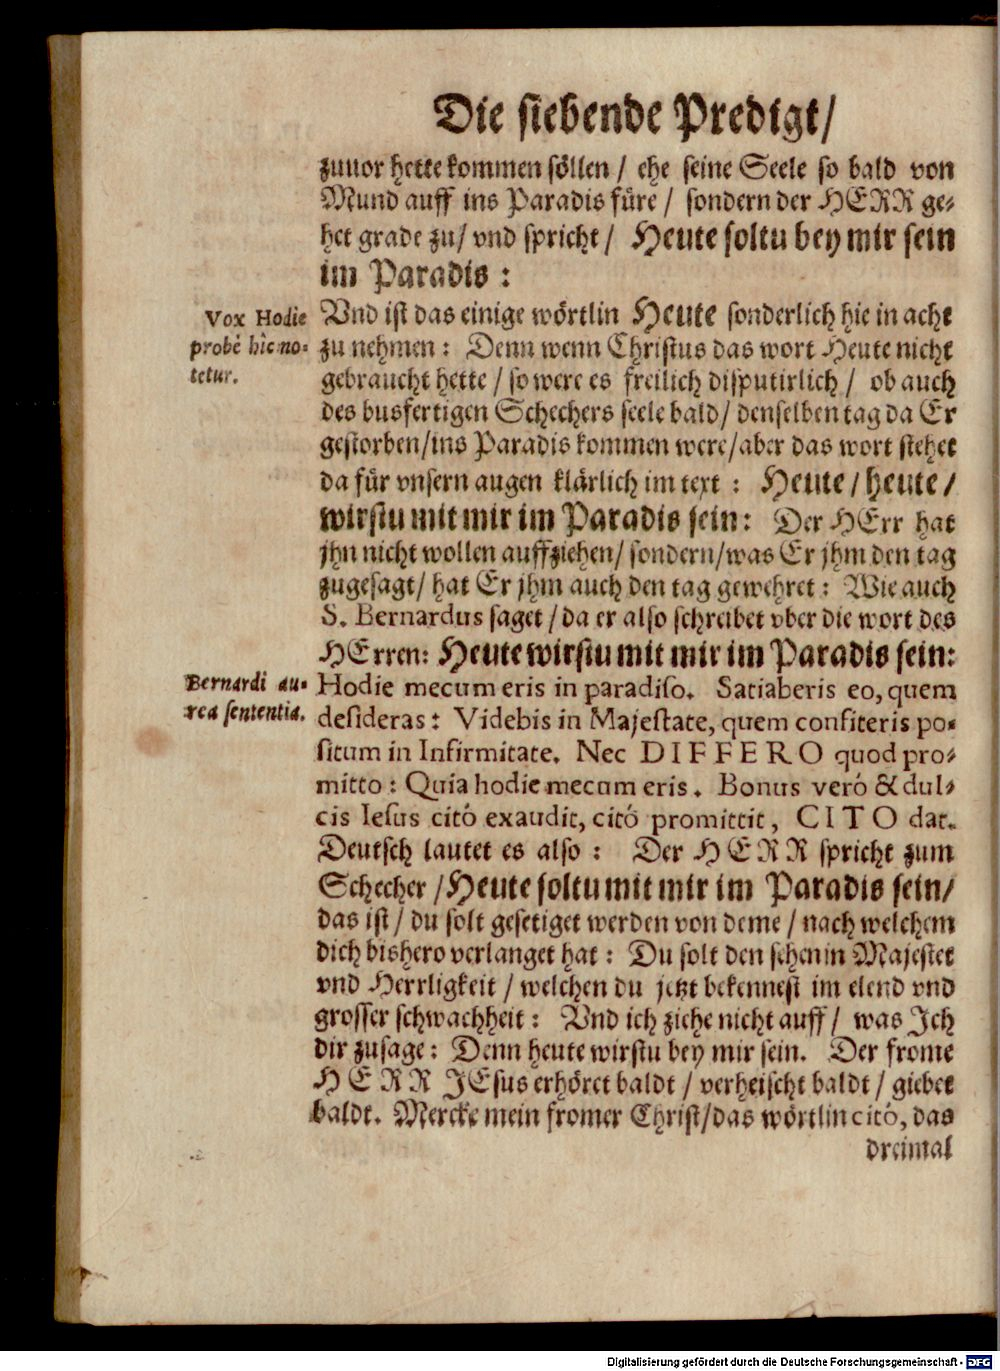 Die siebende Predigt/
zuuor hette kommen söllen / ehe seine Seele so bald von
Mund auff ins Paradis füre / sondern der HERR ge-
het grade zu/ vnd spricht / Heute soltu bey mir sein
im Paradis :
Vox Hodie
probè hîc no-
tetur.
Vnd ist das einige wörtlin Heute sonderlich hie in acht
zu nehmen : Denn wenn Christus das wort Heute nicht
gebraucht hette / so were es freilich disputirlich / ob auch
des busfertigen Schechers seele bald / denselben tag da Er
gestorben/ins Paradis kommen were/aber das wort stehet
da für vnsern augen klärlich im text : Heute / heute /
wirstu mit mir im Paradis sein : Der HErr hat
jhn nicht wollen auffziehen/ sondern/was Er jhm den tag
zugesagt/ hat Er jhm auch den tag gewehret : Wie auch
S. Bernardus saget / da er also schreibet vber die wort des
HErren: Heute wirstu mit mir im Paradis sein:
Bernardi au-
rea sententia.
Hodie mecum eris in paradiso. Satiaberis eo, quem
desideras : Videbis in Majestate, quem confiteris po-
situm in Infirmitate. Nec DIFFERO quod pro-
mitto : Quia hodie mecum eris. Bonus verò & dul-
cis Iesus citò exaudit, citò promittit, CITO dat.
Deutsch lautet es also : Der HERR spricht zum
Schecher / Heute soltu mit mir im Paradis sein/
das ist / du solt gesetiget werden von deme / nach welchem
dich bishero verlanget hat : Du solt den sehen in Majestet
vnd Herrligkeit / welchen du jetzt bekennest im elend vnd
grosser schwachheit : Vnd ich ziehe nicht auff / was Ich
dir zusage : Denn heute wirstu bey mir sein. Der frome
HERR JEsus erhöret baldt / verheischt baldt / giebet
baldt. Mercke mein fromer Christ/das wörtlin citò, das
dreimal
Digitalisierung gefördert durch die Deutsche Forschungsgemeinschaft - DFG